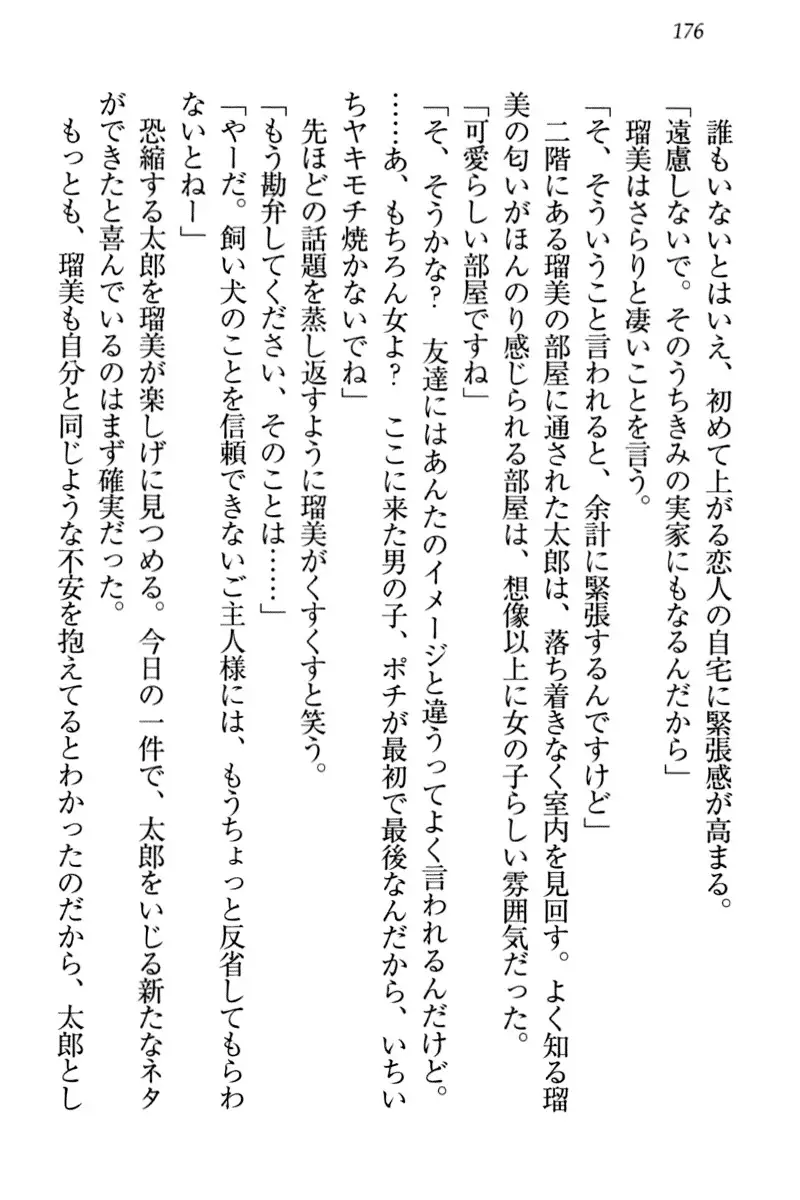 176
誰もいないとはいえ、初めて上がる恋人の自宅に緊張感が高まる。
「遠慮しないで。そのうちきみの実家にもなるんだから」
瑠美はさらりと凄いことを言う。
「そ、そういうこと言われると、余計に緊張するんですけど」
二階にある瑠美の部屋に通された太郎は、落ち着きなく室内を見回す。よく知る瑠
美の匂いがほんのり感じられる部屋は、想像以上に女の子らしい雰囲気だった。
「可愛らしい部屋ですね」
「そ、そうかな?　友達にはあんたのイメージと違うってよく言われるんだけど。
……あ、もちろん女よ?　ここに来た男の子、ポチが最初で最後なんだから、いちい
ちヤキモチ焼かないでね」
先ほどの話題を蒸し返すように瑠美がくすくすと笑う。
「もう勘弁してください、そのことは……」
「やーだ。飼い犬のことを信頼できないご主人様には、もうちょっと反省してもらわ
ないとねー」
恐縮する太郎を瑠美が楽しげに見つめる。今日の一件で、太郎をいじる新たなネタ
ができたと喜んでいるのはまず確実だった。
もっとも、瑠美も自分と同じような不安を抱えてるとわかったのだから、太郎とし